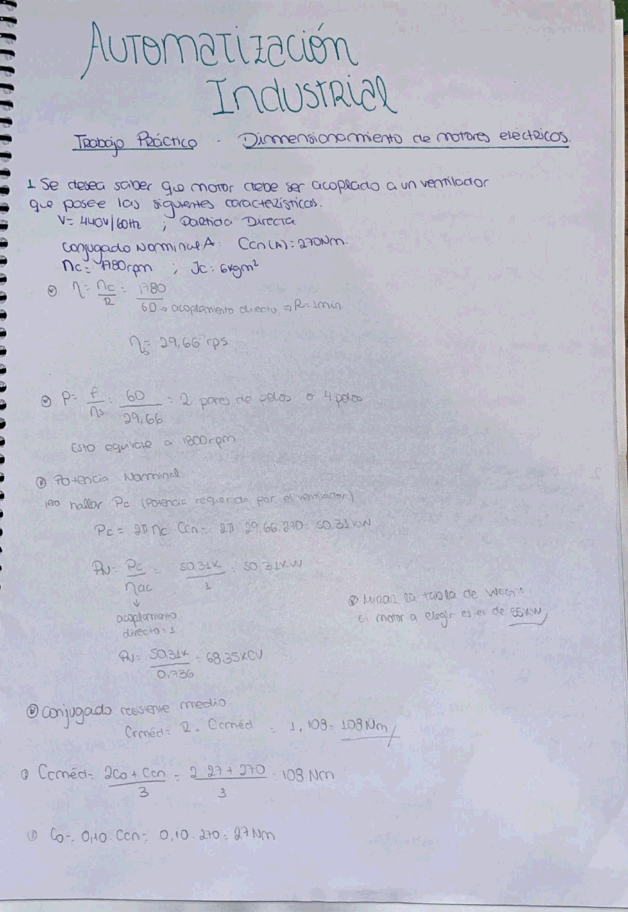 Automatización
Industrial
Trabajo Práctico - Dimmensionamiento de motores eléctricos.
1 Se desea saber que motor debe ser acoplado a un ventilador
que posee las siguientes características.
V= 440V/60Hz ; Partida Directa
Conjugado Nominal A: Ccn(A): 270Nm.
nc= 1780rpm ; Jc: 6kgm²
η= nc/R = 1780/60 → acoplamiento directo → R=1min
ηs= 29,66 rps
P= f/ns = 60/29,66 = 2 pares de polos o 4 polos
Esto equivale a 1800rpm
Potencia Nominal
1ero hallar Pc (Potencia requerida por el ventilador)
Pc = 2π nc Ccn = 2π 29,66.270= 50.31kW
PN= Pc/ηac = 50.31k/1 = 50.31kW
↓
acoplamiento
directo=1
Mirar la tabla de Weg:
El motor a elegir es el de 55kW
PN= 50.31k/0,736 = 68.35KCV
Conjugado resistente medio
Crméd= R. Ccméd = 1.108= 108Nm
Ccméd= 2Co + Ccn/3 = 2 27 + 270/3 = 108 Nm
Co= 0,10 Ccn= 0,10.270= 27Nm